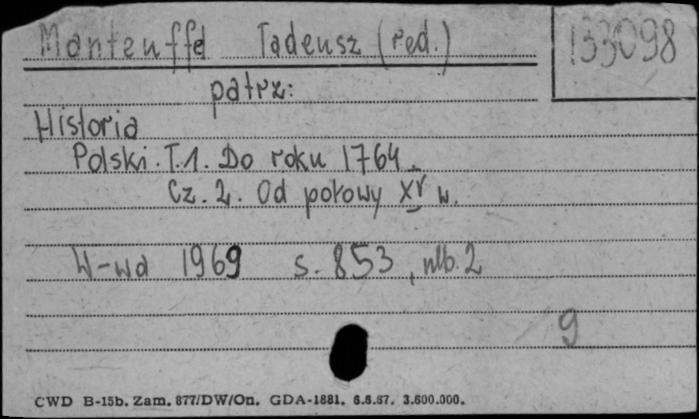 Manteuffel Tadeusz (red.) 133098
patrz:
Historia
Polski. T.1. Do roku 1764.
Cz. 2. Od połowy XV w.
W-wa 1969 s. 853, nlb. 2
9
CWD B-15b. Zam. 877/DW/On. GDA-1881. 6.6.67. 3.600.000.